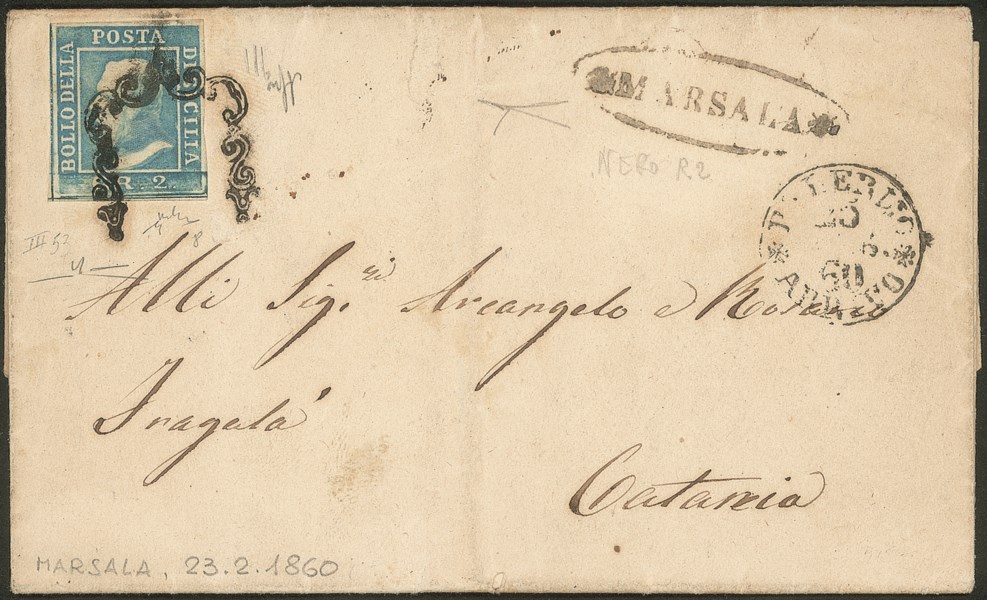 POSTA
BOLLO DELLA
DI SICILIA
GR. 2.
MARSALA
NERO R2
PALERMO
25
60
ARRIVO
III
8
Alli Sig.ri Arcangelo e Rosario
Fragalà
Catania
MARSALA, 23.2.1860